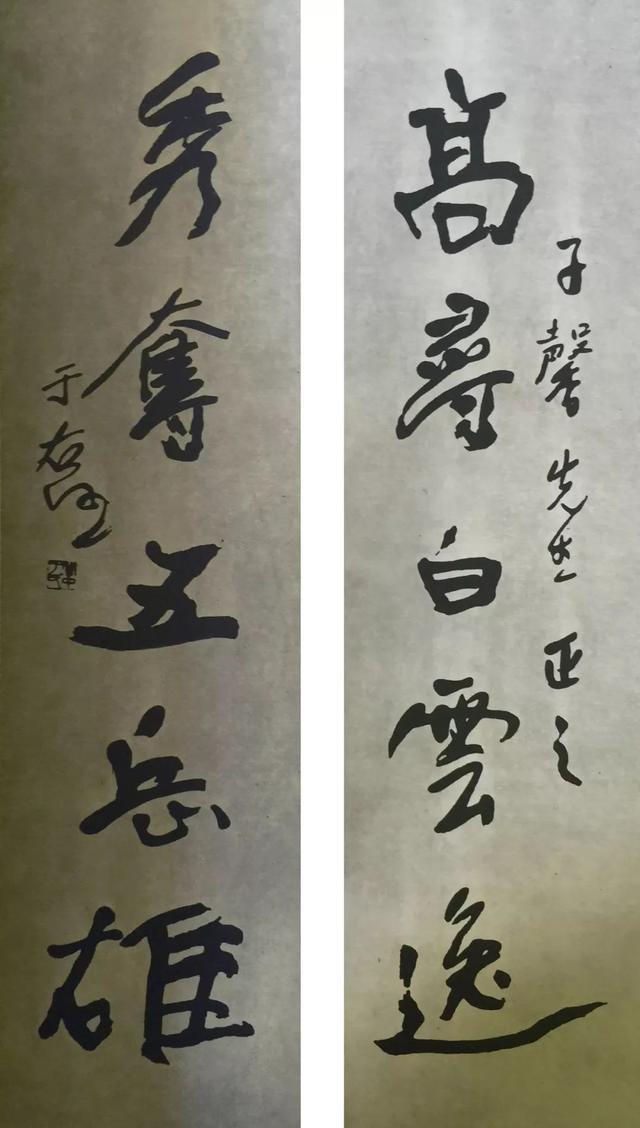 高尋白雲逸
子馨先生正之
秀奪五岳雄
于右任